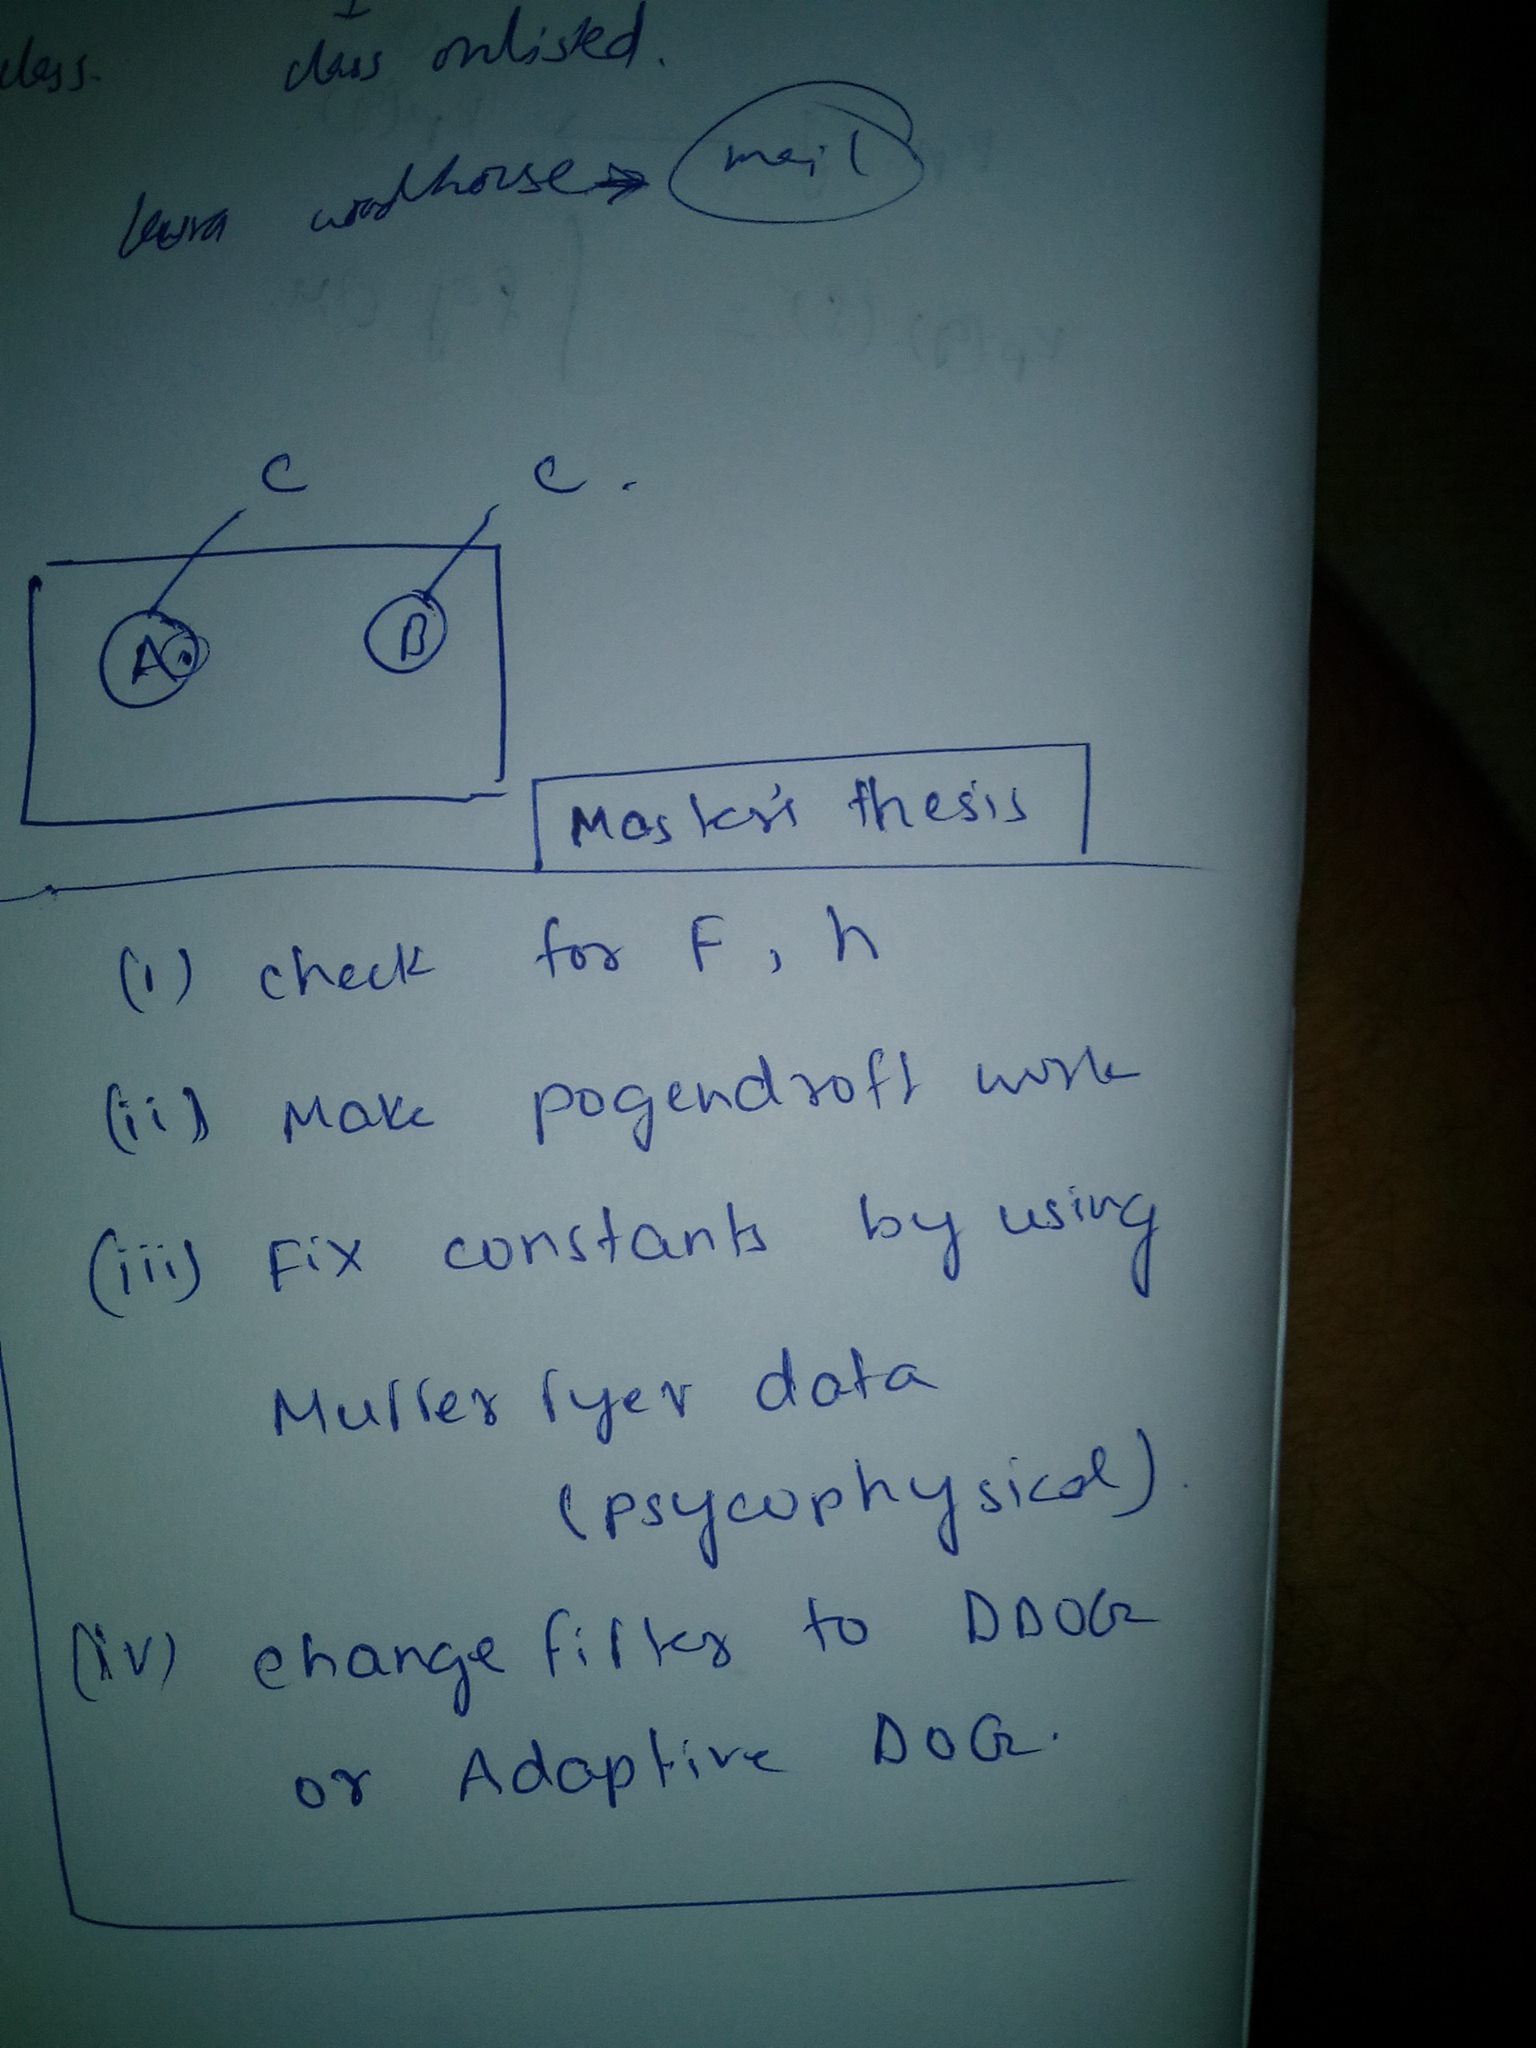 class. class enlisted.
laura woodhouse → mail
C C.
A B
Master's thesis
(i) check for F, h
(ii) Make pogendroft work
(iii) Fix constants by using
Muller lyer data
(psycophysical).
(iv) change filter to DDOG
or Adaptive DOG.